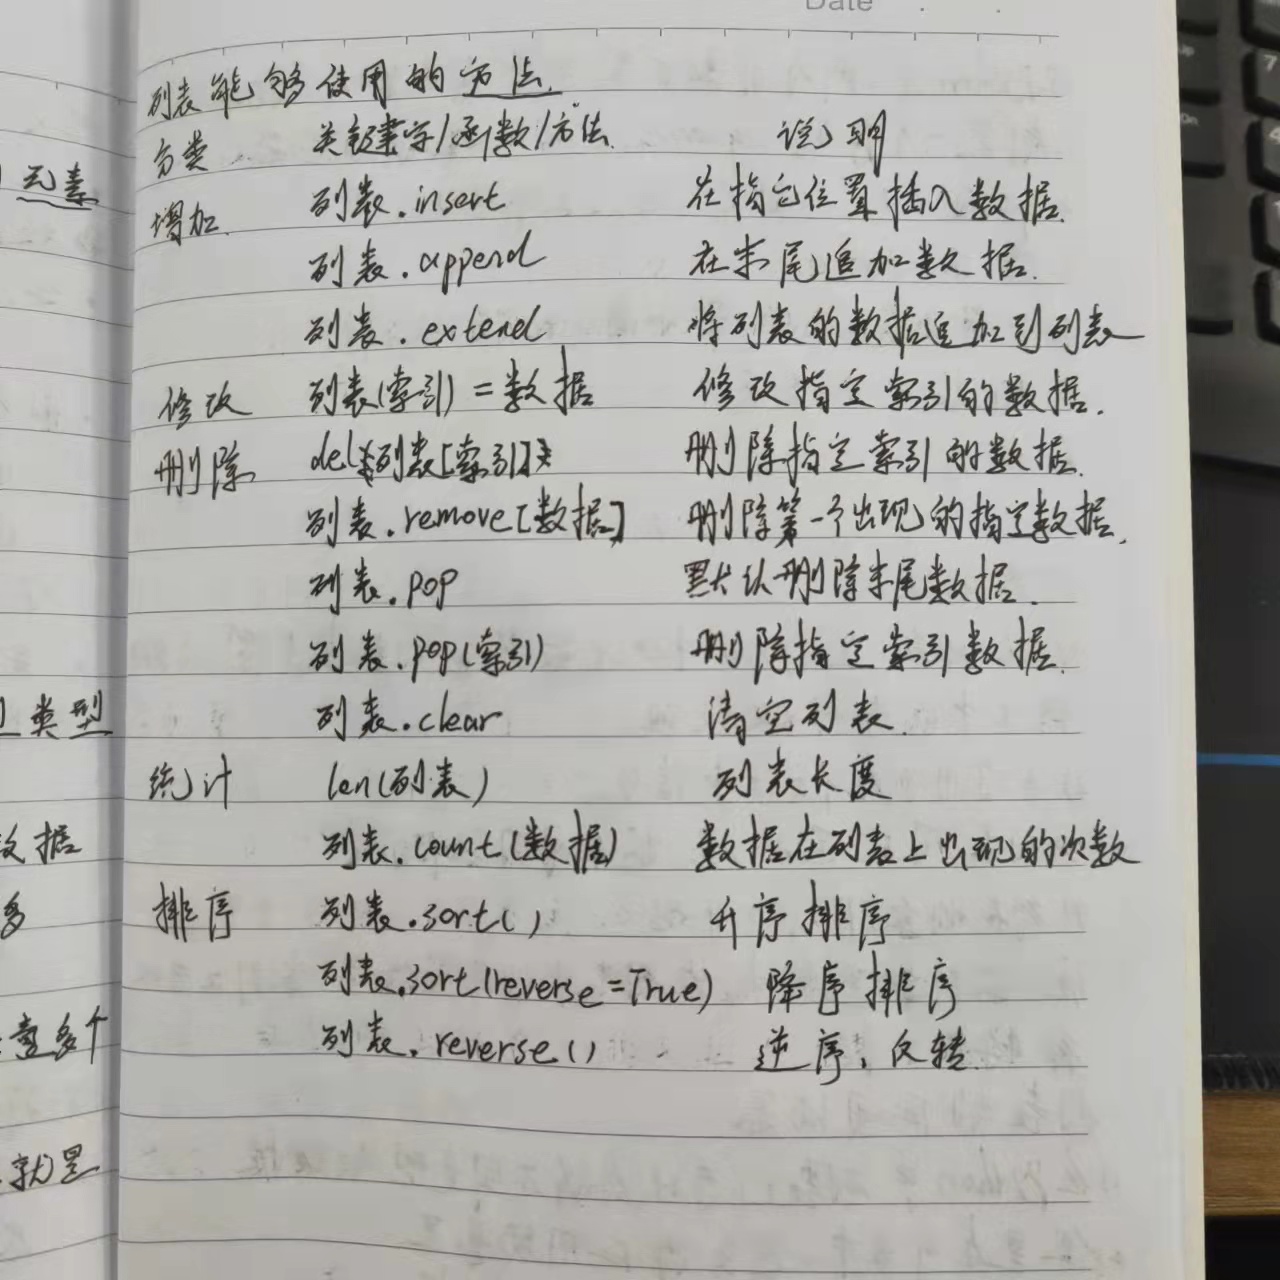 Date
列表能够使用的方法.
分类 关键字/函数/方法. 说明
增加. 列表.insert 在指定位置插入数据.
列表.append 在末尾追加数据.
列表.extend 将列表的数据追加到列表
修改 列表(索引)=数据 修改指定索引的数据.
删除 del 列表[索引] 删除指定索引的数据.
列表.remove[数据] 删除第一个出现的指定数据.
列表.pop 默认删除末尾数据.
列表.pop(索引) 删除指定索引数据.
列表.clear 清空列表.
统计 len(列表) 列表长度
列表.count(数据) 数据在列表上出现的次数
排序 列表.sort() 升序排序
列表.sort(reverse=True) 降序排序
列表.reverse() 逆序,反转.
元素
类型
数据
多
意多个
就是